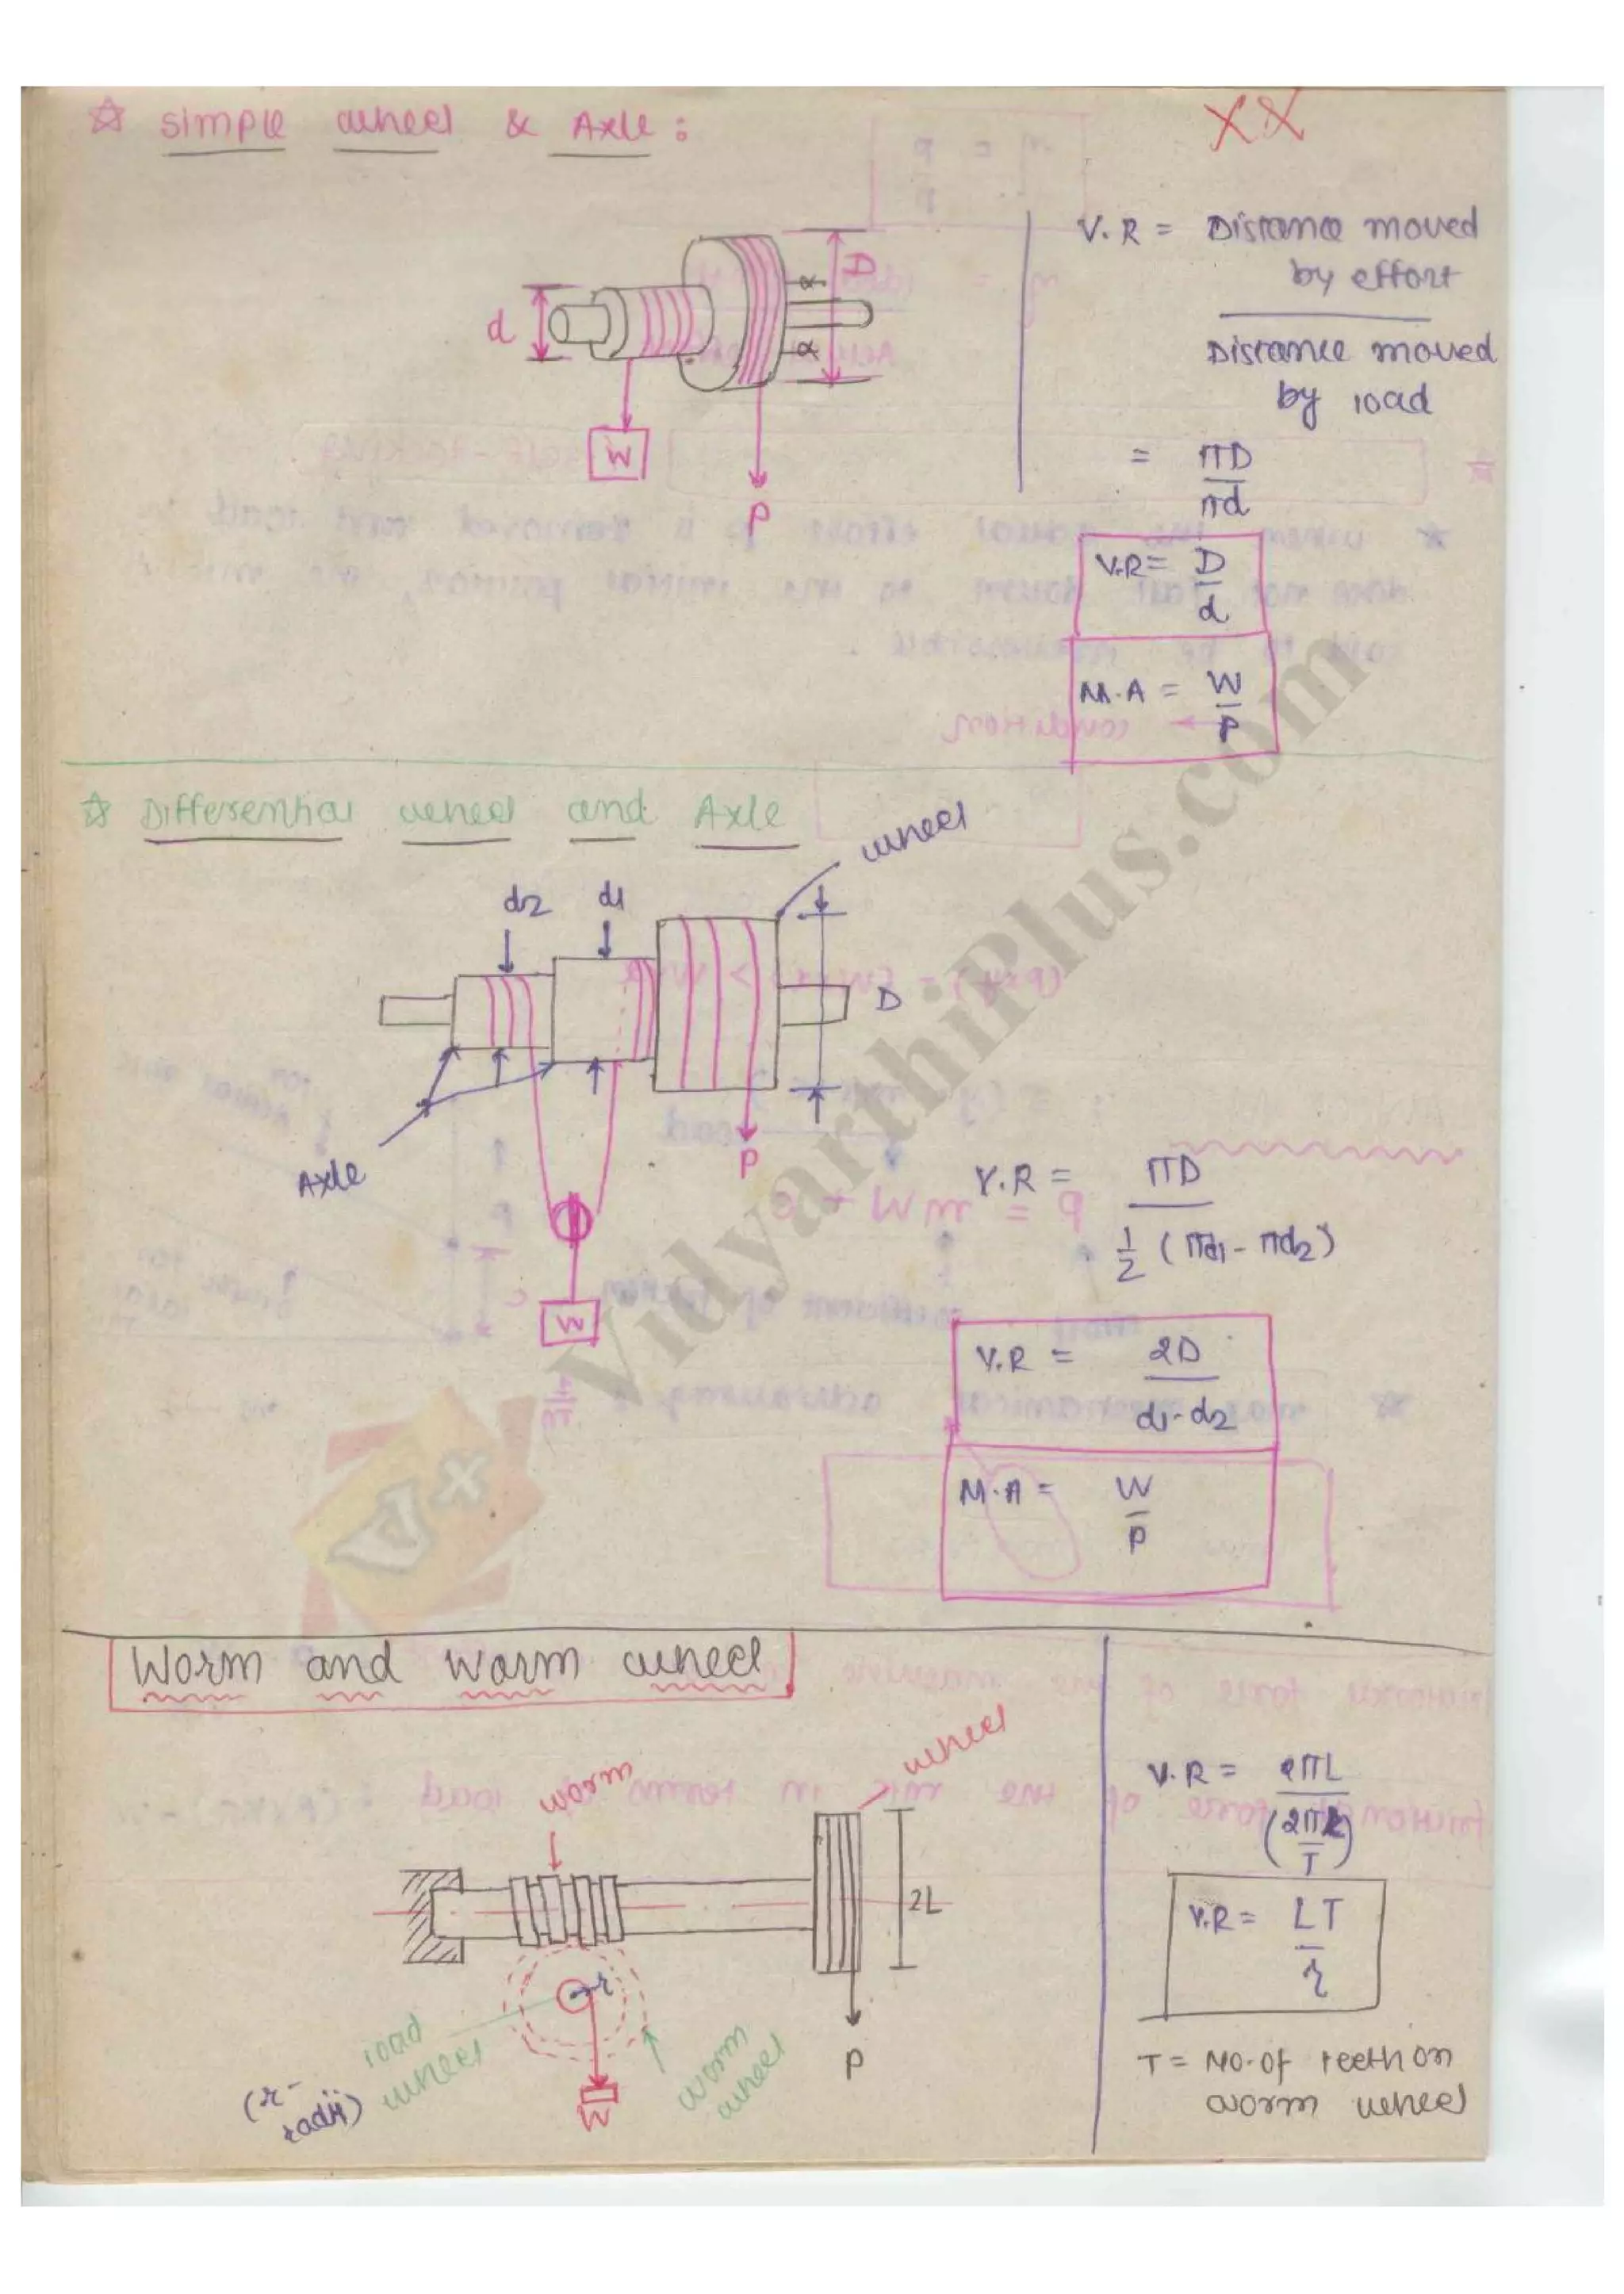 ☆ Simple wheel & Axle :
XX
D
d
α
α
W
P
V.R = Distance moved
by effort
Distance moved
by load
= πD
πd
V.R = D
d
M.A = W
P
☆ Differential wheel and Axle
wheel
d2 d1
D
Axle
P
W
V.R = πD
1/2 (πd1 - πd2)
V.R = 2D
d1-d2
M.A = W
P
Worm and warm wheel
worm
wheel
2L
r
load
wheel
(r-
radii)
W
worm
wheel
P
V.R = 2πL
(2πr
T)
V.R = LT
r
T = No. of teeth on
worm wheel
VidyarthiPlus.com
V+